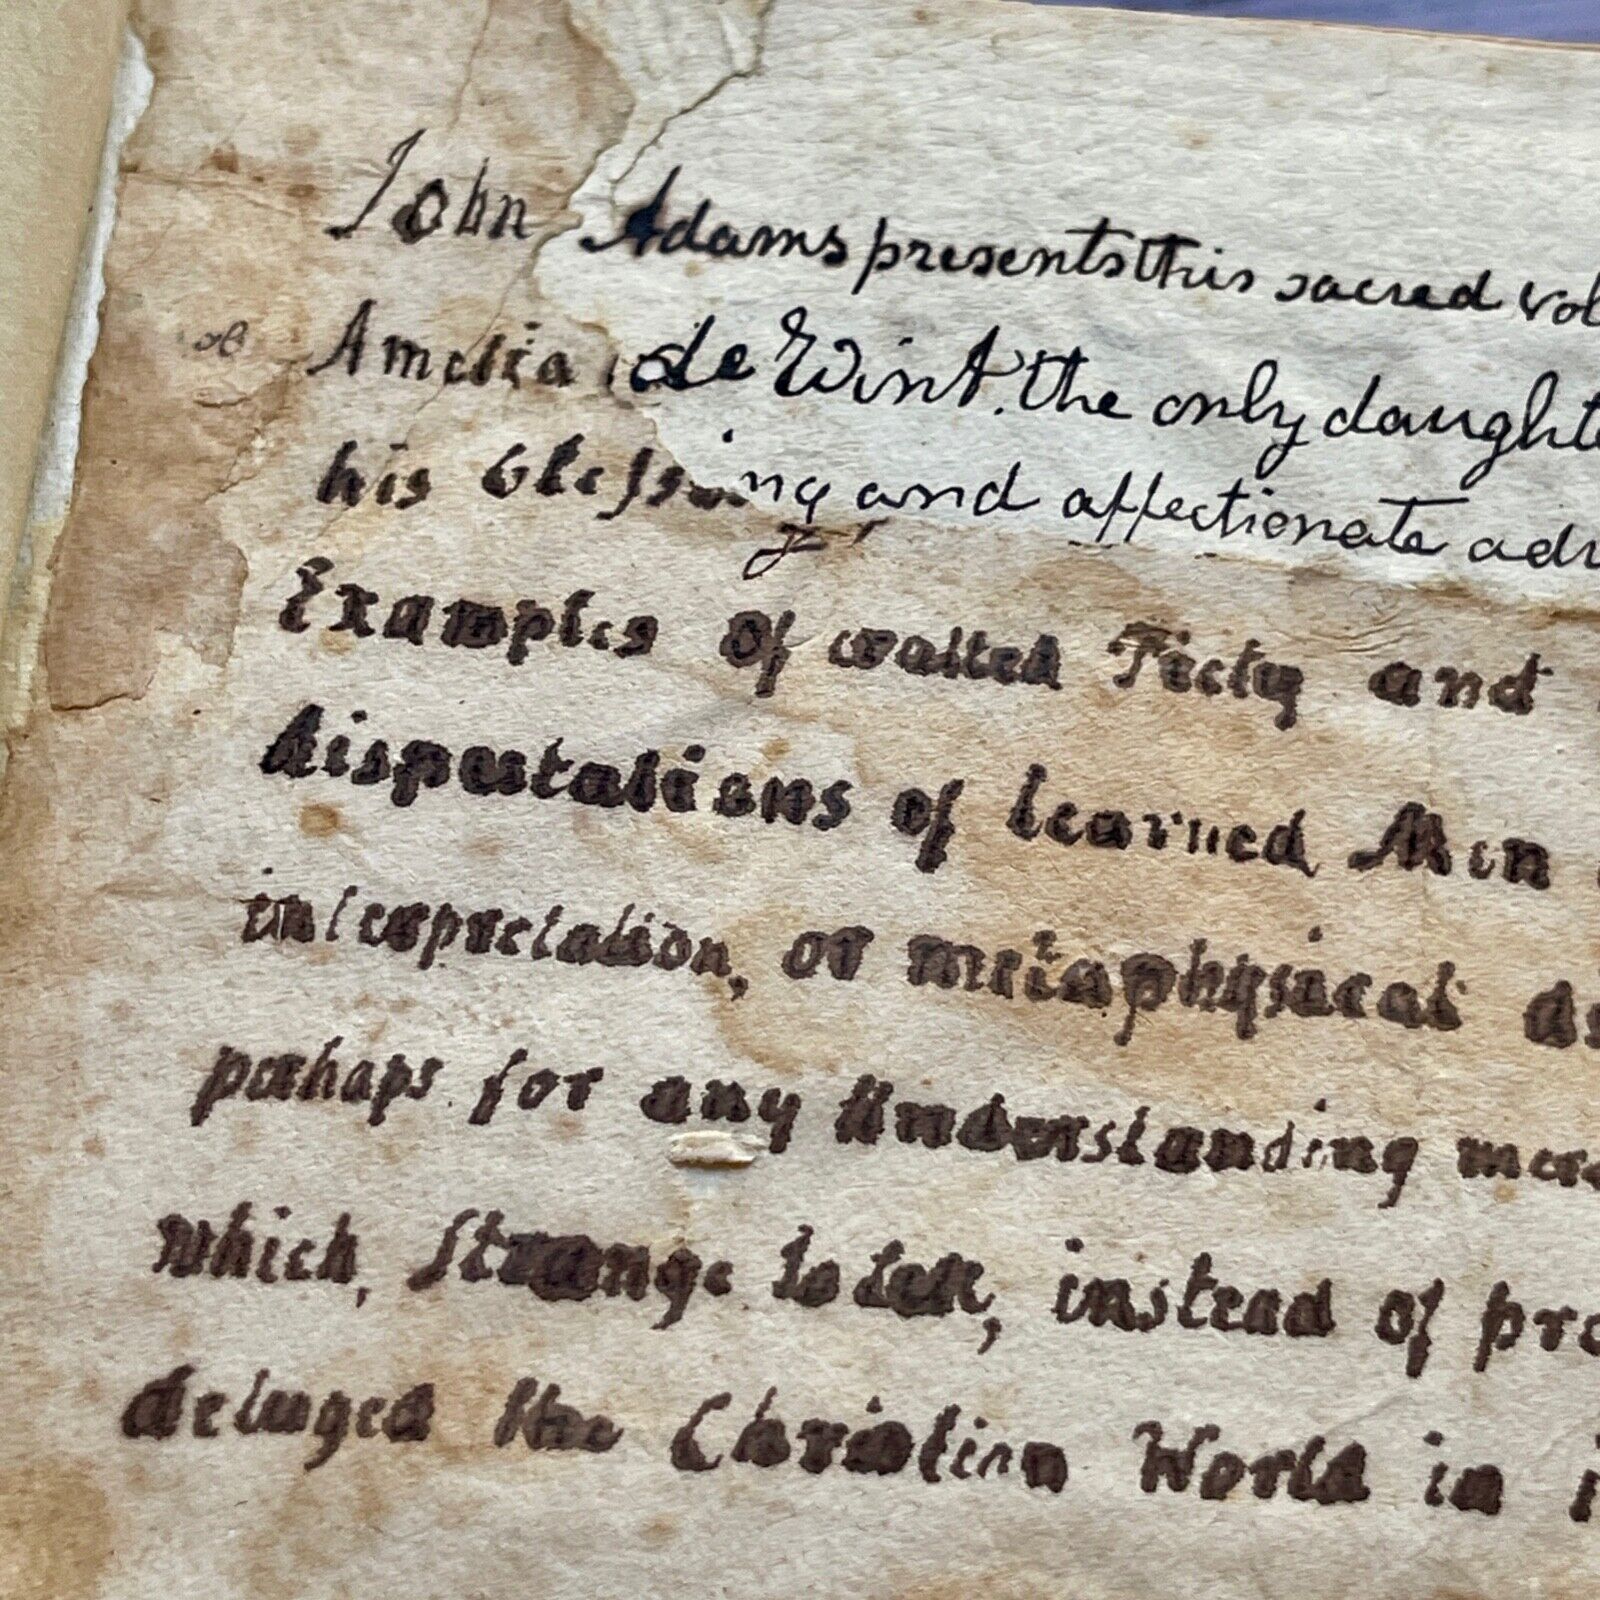 John Adams presents this sacred vol
Amelia de Wint. the only daught
his blessing and affectionate adv
Examples of exalted Piety and
disputations of learned Men
interpretation, or metaphysical ds
perhaps for any Understanding mere
which, Strange to tell, instead of pro
deluged the Christian World in i